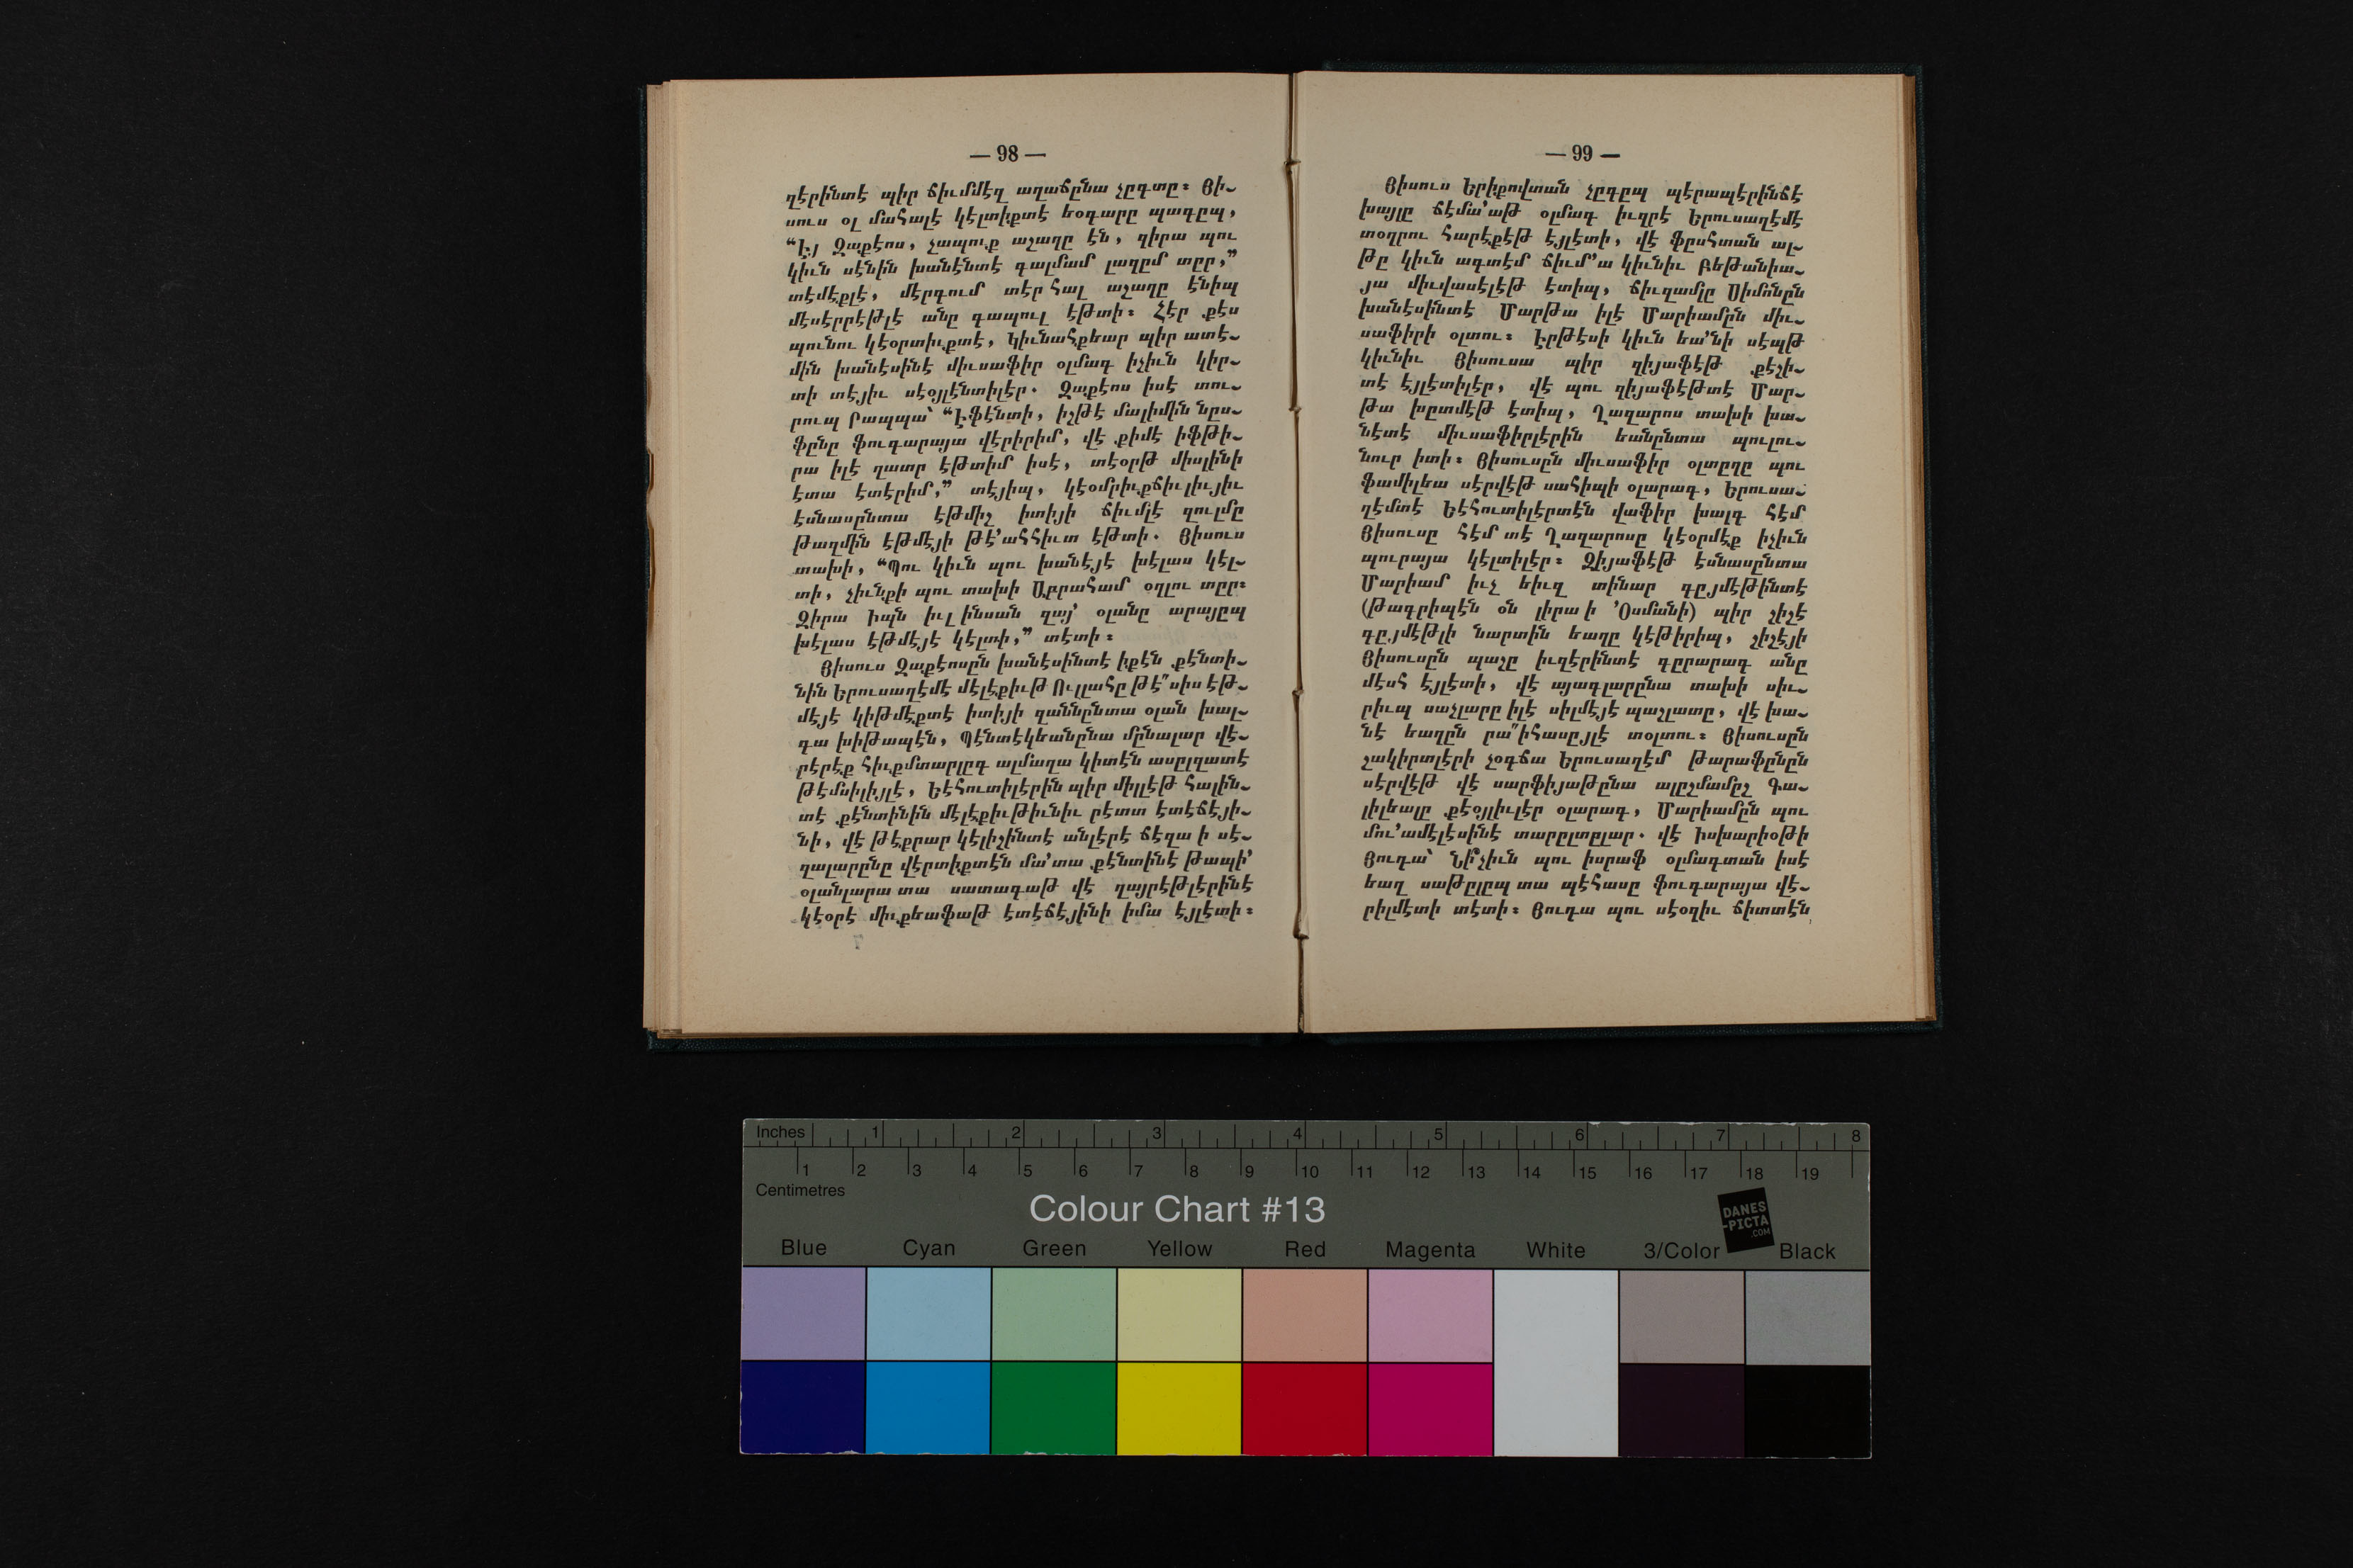 — 98 —
զէրինտէ պիր ճիւմմէզ աղաճընա չըգտը։ Յի-
սուս օլ մահալէ կէլտիքտէ եօգարը պագըպ,
“Էյ Զաքէոս, չապուք աշաղը էն, զիրա պու
կիւն սէնին խանէնտէ գալմամ լազըմ տըր,”
տէմէքլէ, մէրգում տէր հալ աշաղը էնիպ
մէսէրրէթլէ անը գապուլ էթտի։ Հէր քէս
պունու կէօրտիւքտէ, Կիւնահքեար պիր ատէ-
մին խանէսինէ միւսաֆիր օլմագ իչիւն կիր-
տի տէյիւ սէօյլէնտիլէր. Զաքէոս իսէ տու-
րուպ Րապպա՝ “Էֆէնտի, իշթէ մալիմին նըս-
ֆընը ֆուգարայա վէրիրիմ, վէ քիմէ իֆթի-
րա իլէ ղատր էթտիմ իսէ, տէօրթ միսլինի
էտա էտէրիմ,” տէյիպ, կէօմրիւքճիւլիւյիւ
էսնասընտա էթմիշ իտիյի ճիւմլէ զուլմը
թազմին էթմէյի թէ՛ահհիւտ էթտի. Յիսուս
տախի, “Պու կիւն պու խանէյէ խէլաս կէլ-
տի, չիւնքի պու տախի Աբրահամ օղլու տըր։
Զիրա Իպն իւլ ինսան զայ՛ օլանը արայըպ
խէլաս էթմէյէ կէլտի,” տէտի։
Յիսուս Զաքէոսըն խանէսինտէ իքէն քէնտի-
նին Երուսաղէմէ մէլէքիւթ Ուլլահը թէ՛՛սիս էթ-
մէյէ կիթմէքտէ իտիյի զաննընտա օլան խալ-
գա խիթապէն, Պէնտէկեանընա մընալար վէ-
րէրէք հիւքմտարլըգ ալմաղա կիտէն ասըլզատէ
թէմսիլիյլէ, Եէհուտիլէրին պիր միլլէթ հալին-
տէ քէնտինին մէլէքիւթիւնիւ րէտտ էտէճէյի-
նի, վէ թէքրար կէլիշինտէ անլէրէ ճէզա ի սէ-
զալարընը վէրտիքտէն մա՛տա քէնտինէ թապի՛
օլանլարա տա սատագաթ վէ ղայրէթլէրինէ
կէօրէ միւքեաֆաթ էտէճէյինի իմա էյլէտի։
— 99 —
Յիսուս Երիքովտան չըգըպ պէրապէրինճէ
խայլը ճէմա՛աթ օլմագ իւզրէ Երուսաղէմէ
տօղրու հարէքէթ էյլէտի, վէ ֆըսհտան ալ-
թը կիւն ագտէմ ճիւմ՛ա կիւնիւ Բեթանիա-
յա միւվասէլէթ էտիպ, ճիւզամլը Սիմոնըն
խանէսինտէ Մարթա իլէ Մարիամըն միւ-
սաֆիրի օլտու։ Էրթէսի կիւն եա՛նի սէպթ
կիւնիւ Յիսուսա պիր զիյաֆէթ քէշի-
տէ էյլէտիլէր, վէ պու զիյաֆէթտէ Մար-
թա խըտմէթ էտիպ, Ղազարոս տախի խա-
նէտէ միւսաֆիրլէրին եանընտա պուլու-
նուր իտի։ Յիսուսըն միւսաֆիր օլտըղը պու
ֆամիլեա սէրվէթ սահիպի օլարագ, Երուսա-
ղէմտէ Եէհուտիլէրտէն վաֆիր խալգ հէմ
Յիսուսը հէմ տէ Ղազարոսը կէօրմէք իչիւն
պուրայա կէլտիլէր։ Զիյաֆէթ էսնասընտա
Մարիամ իւչ եիւզ տինար գըյմէթինտէ
(թագրիպէն օն լիրա ի ՛Օսմանի) պիր շիշէ
գըյմէթլի նարտին եաղը կէթիրիպ, շիշէյի
Յիսուսըն պաշը իւզէրինտէ գըրարագ անը
մէսհ էյլէտի, վէ այագլարընա տախի սիւ-
րիւպ սաչլարը իլէ սիլմէյէ պաշլատը, վէ խա-
նէ եաղըն րա՛՛իհասըյլէ տօլտու։ Յիսուսըն
շակիրտլէրի չօգճա Երուսաղէմ թարաֆընըն
սէրվէթ վէ սարֆիյաթընա ալըշմամըշ Գա-
լիլեալը քէօյլիւլէր օլարագ, Մարիամըն պու
մու՛ամէլէսինէ տարըլտըլար. վէ Իսխարիօթի
Յուդա՝ Նի՞չիւն պու իսրաֆ օլմագտան իսէ
եաղ սաթըլըպ տա պէհասը ֆուգարայա վէ-
րիլմէտի տէտի։ Յուդա պու սէօզիւ ճիտտէն
Inches 1 2 3 4 5 6 7 8
1 2 3 4 5 6 7 8 9 10 11 12 13 14 15 16 17 18 19
Centimetres
Colour Chart #13
DANES
-PICTA
.COM
Blue Cyan Green Yellow Red Magenta White 3/Color Black